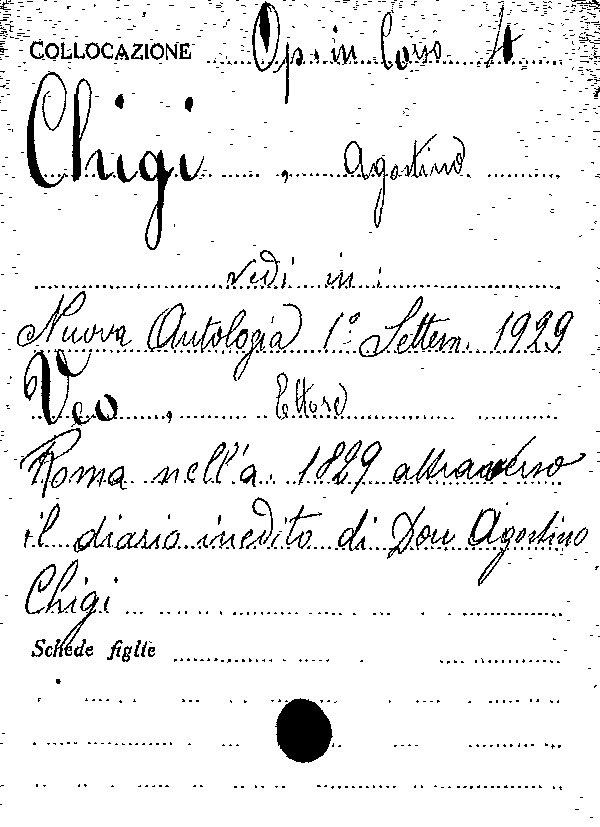 COLLOCAZIONE Op. in Corso 4
Chigi, Agostino
vedi in:
Nuova Antologia 1º Settem. 1929
Veo, Ettore
Roma nell'a. 1829 attraverso
il diario inedito di Don Agostino
Chigi
Schede figlie